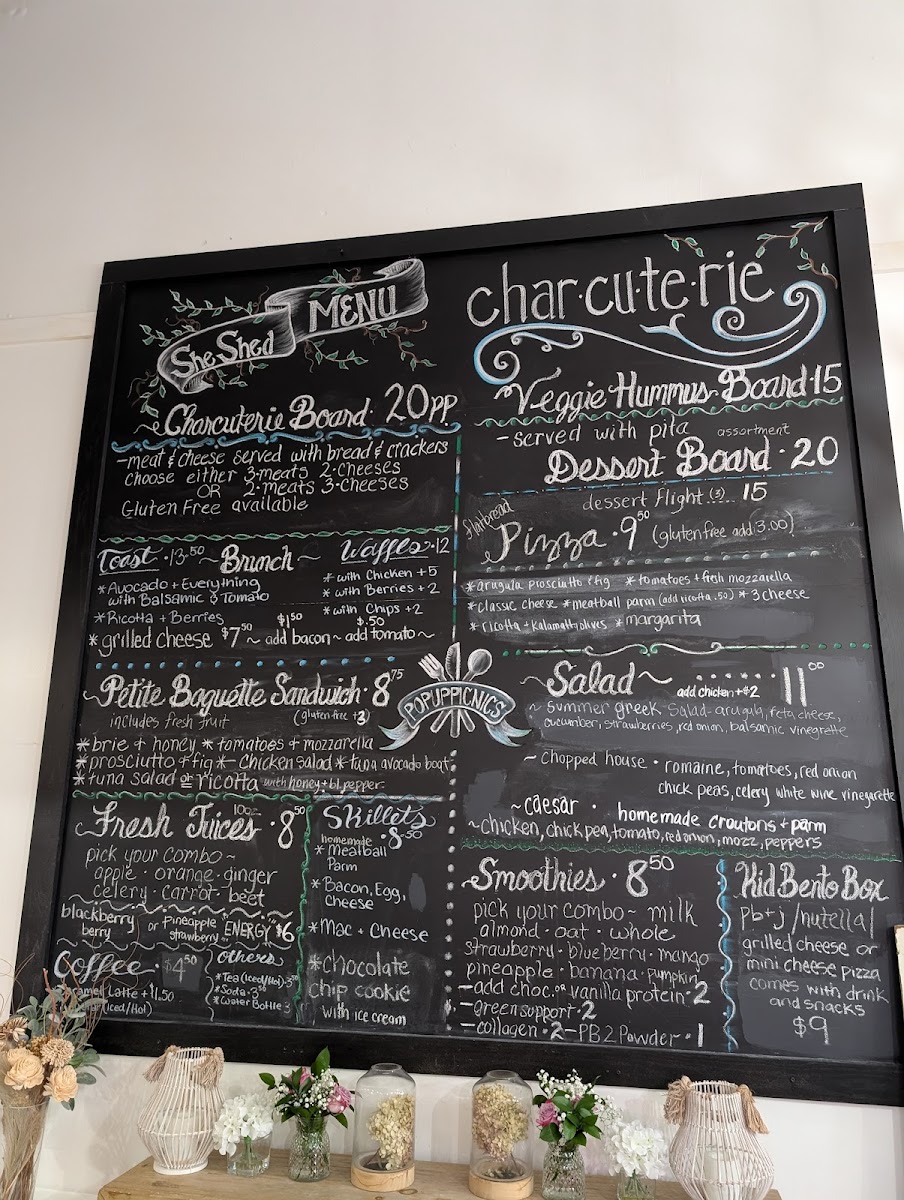 She Shed MENU
Charcuterie Board · 20pp
- meat & cheese served with bread & crackers
choose either 3·meats 2·cheeses
OR 2·meats 3·cheeses
Gluten Free available
Toast · 13.50 ~ Brunch ~ Waffles · 12
* Avocado + Everything
with Balsamic & Tomato
* Ricotta + Berries
* with Chicken + 5
* with Berries + 2
* with Chips + 2
$1.50 $.50
* grilled cheese $7.50 ~ add bacon ~ add tomato ~
~ Petite Baguette Sandwich · 8.75
includes fresh fruit (gluten free + 3)
* brie & honey * tomatoes & mozzarella
* prosciutto & fig * chicken salad * tuna avocado boat
* tuna salad or ricotta with honey + bl. pepper
Fresh Juices 10oz · 8.50
pick your combo ~
apple · orange · ginger
celery · carrot · beet
blackberry berry or Pineapple strawberry or "ENERGY" $6
Coffee $4.50
Caramel Latte + 11.50
(Iced/Hot)
others
* Tea (Iced/Hot)
* Soda · 3.50
* Water Bottle 3
Skillets 8.50
homemade
* Meatball Parm
* Bacon, Egg, Cheese
* Mac + Cheese
* chocolate
chip cookie
with ice cream
POPUPPICNIC'S
char·cu·te·rie
Veggie Hummus Board · 15
- served with pita assortment
Dessert Board · 20
dessert flight (3).... 15
flatbread
Pizza · 9.50 (gluten free add 3.00)
* arugula prosciutto & fig * tomatoes + fresh mozzarella
* classic cheese * meatball parm (add ricotta .50) * 3 cheese
* ricotta + kalamatt olives * margarita
~ Salad ~ add chicken + $2 ...... 11.00
~ summer greek salad - arugula, feta cheese,
cucumber, strawberries, red onion, balsamic vinegrette
~ chopped house · romaine, tomatoes, red onion
chick peas, celery white wine vinegarette
~ caesar · homemade croutons + parm
~ chicken, chick pea, tomato, red onion, mozz, peppers
Smoothies · 8.50
pick your combo ~ milk
almond · oat · whole
strawberry · blueberry · mango
pineapple · banana · pumpkin
- add choc. or vanilla protein · 2
- green support · 2
- collagen · 2 - PB2 Powder · 1
Kid Bento Box
pb + j / nutella /
grilled cheese or
mini cheese pizza
comes with drink
and snacks
$9